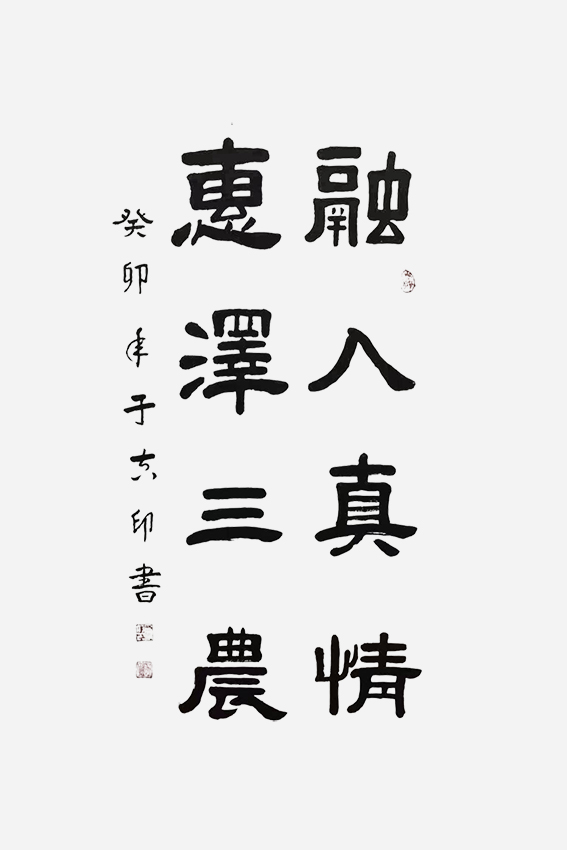 融入真情
惠澤三農
癸卯年于志印書